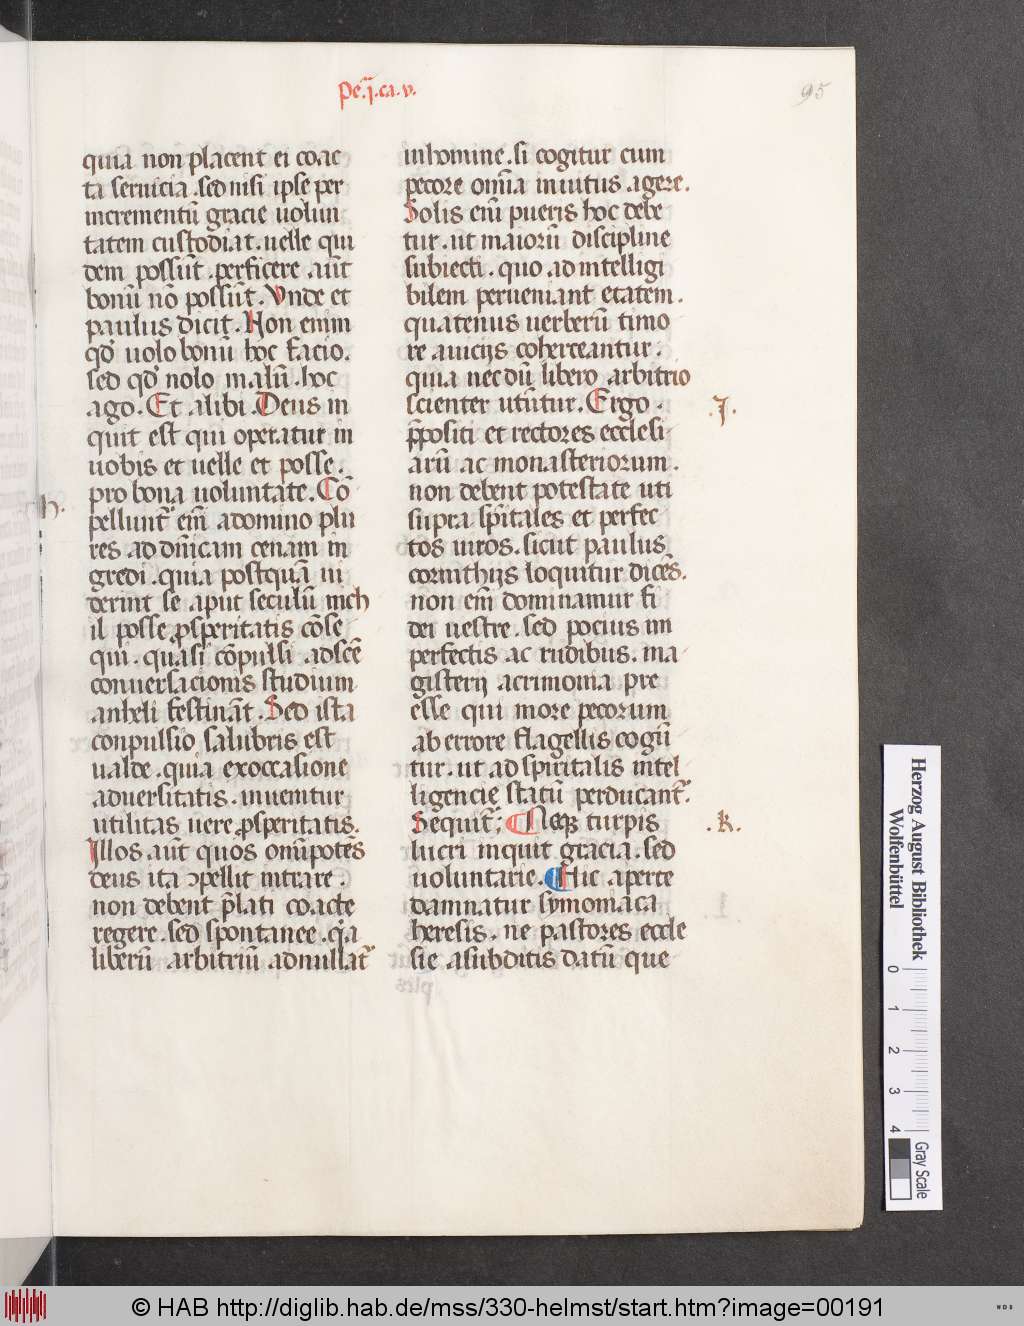 Pe.ͥj.ca.v.
95
quia non placent ei coac
ta seruicia .sed nisi ipse per
incrementū gracie uolun
tatem custodiat .uelle qui
dem possūt .perficere .aūt
bonū nō possūt. Vnde et
paulus dicit. Non enim
qd̕ uolo bonū hoc facio.
sed qd̕ nolo malū .hoc
ago. Et alibi. Deus in
quit est qui operatur in
uobis et uelle et posse.
pro bona uoluntate. Cō
pelluntᷣ em̄ a domino plu
res ad dn̄icam cenam in
gredi .quia postquā ui
derint se aput seculū nich
il posse ꝓsperitatis cōse
qui .quasi cōpulsi ad scē
conuersacionis studium
anheli festināt. Sed ista
conpulsio salubris est
ualde .quia ex occasione
aduersitatis .inuenitur
utilitas uere ꝓsperitatis.
Illos .aūt quos om̄ipotēs
deus ita ꝯpellit intrare.
non debent p̄lati coacte
regere .sed spontanee .qͥa
liberū arbitriū adnullatᷣ
h.
in homine .si cogitur cum
pecore om̄ia inuitus agere.
Solis em̄ pueris hoc debe
tur .ut maiorū discipline
subiecti .quo ad intelligi
bilem perueniant etatem.
quatenus uerberū timo
re a uicijs coherceantur.
quia necdū libero arbitrio
scienter utūtur. Ergo.
p̄positi et rectores ecclesi
arū ac monasteriorum.
non debent potestate uti
supra sp̄itales et perfec
tos uiros .sicut paulus
corinthijs loquitur dicēs.
non em̄ dominamur fi
dei uestre .sed pocius im
perfectis ac rudibus .ma
gisterij acrimonia pre
esse qui more pecorum
ab errore flagellis cogū
tur .ut ad spiritalis intel
ligencie statū perducantᷣ.
Sequitᷣ; Neqꝫ turpis
lucri inquit gracia .sed
uoluntarie. Hic aperte
damnatur symoniaca
heresis .ne pastores eccle
sie a subditis datū que
.J.
.k.
Herzog August Bibliothek
Wolfenbüttel
0 1 2 3 4
Gray Scale
© HAB http://diglib.hab.de/mss/330-helmst/start.htm?image=00191